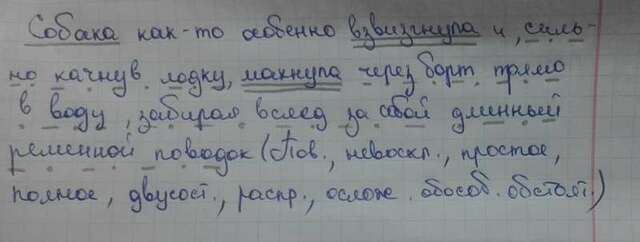 Собака как-то особенно взвизгнула и, силь-
но качнув лодку, махнула через борт прямо
в воду, забирая вслед за собой длинный
ременной поводок (Пов., невоскл., простое,
полное, двусост., распр., ослож. обособ. обстоят.)